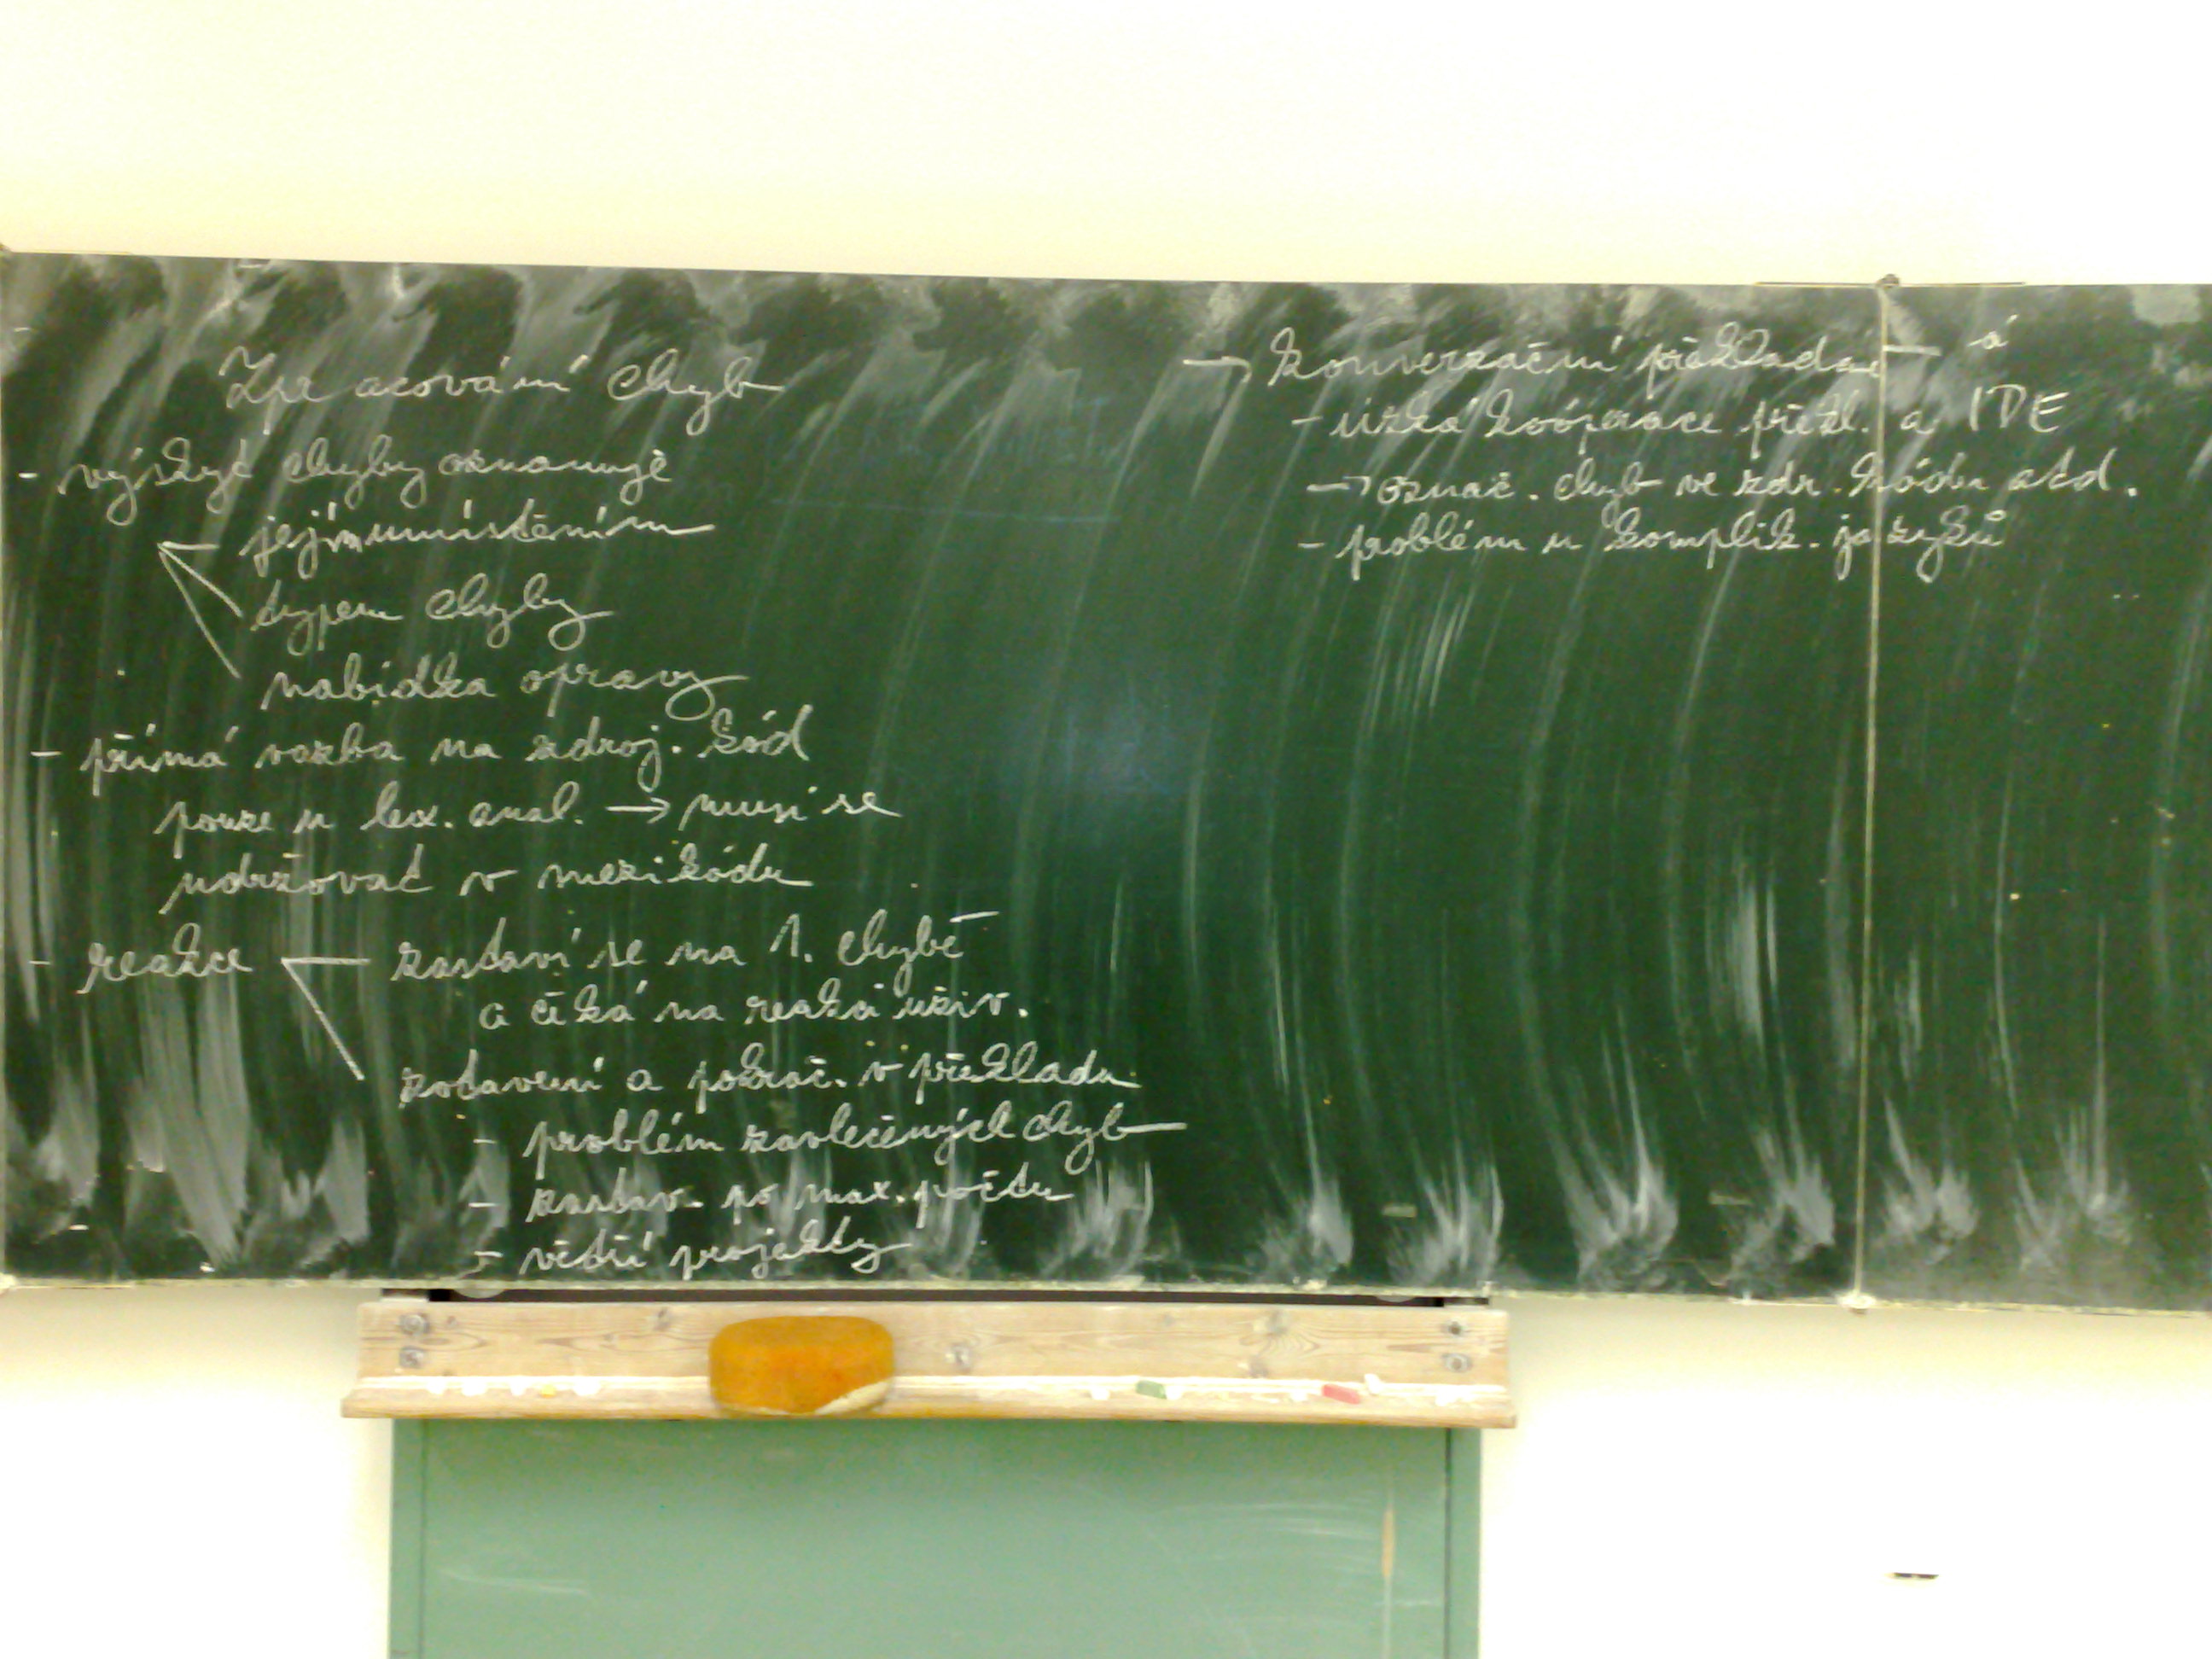 Zpracování chyb
- výskyt chyby oznamuje
jejím umístěním
typem chyby
nabídka opravy
- přímá vazba na zdroj. kód
pouze u lex. anal. → musí se
udržovat v mezikódu
- reakce
zastaví se na 1. chybě
a čeká na reakci uživ.
zotavení a pokrač. v překladu
- problém zavlečených chyb
- zastav. po max. počtu
- větší projekty
→ konverzační překladač
- úzká kooperace překl. a IDE
→ označ. chyb ve zdr. kódu atd.
- problém u komplik. jazyků